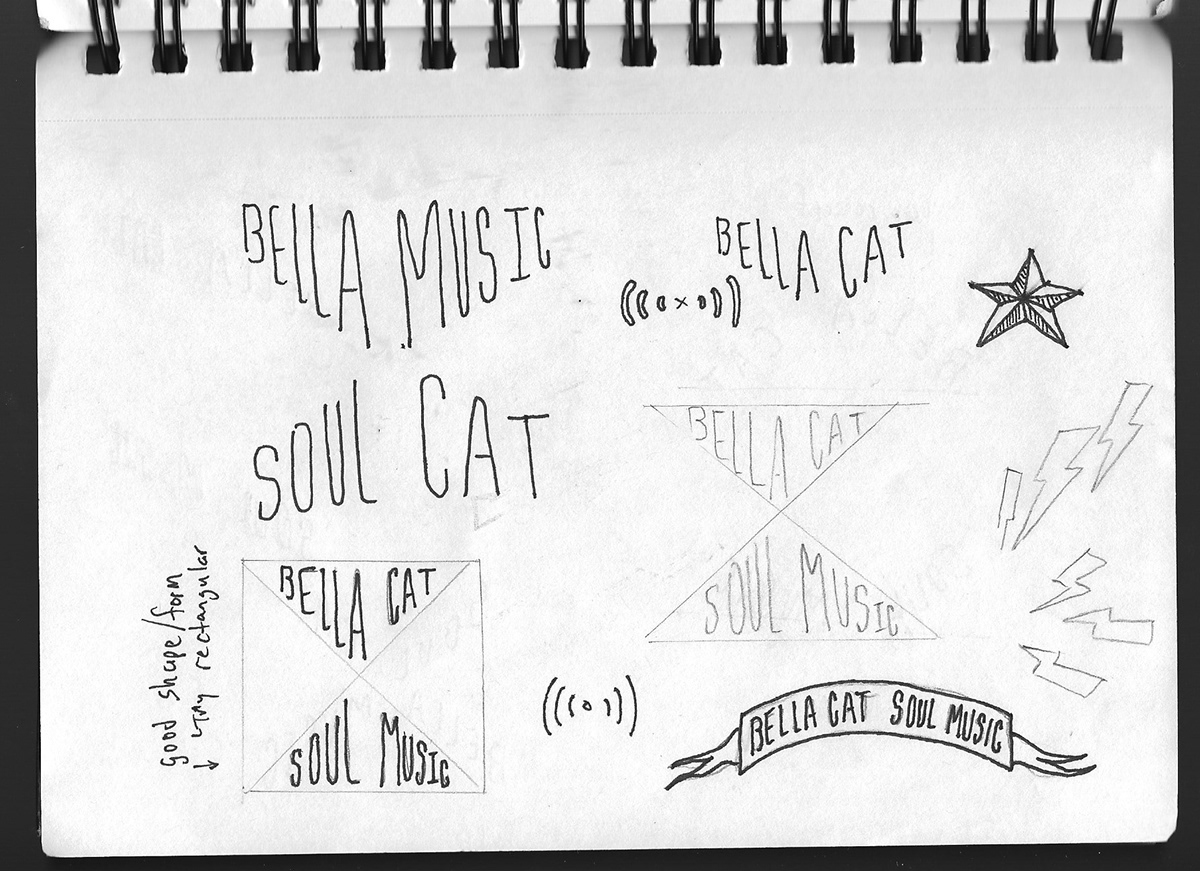 BELLA MUSIC
BELLA CAT
SOUL CAT
BELLA CAT
SOUL MUSIC
good shape/form
↳ try rectangular
BELLA CAT
SOUL MUSIC
BELLA CAT SOUL MUSIC